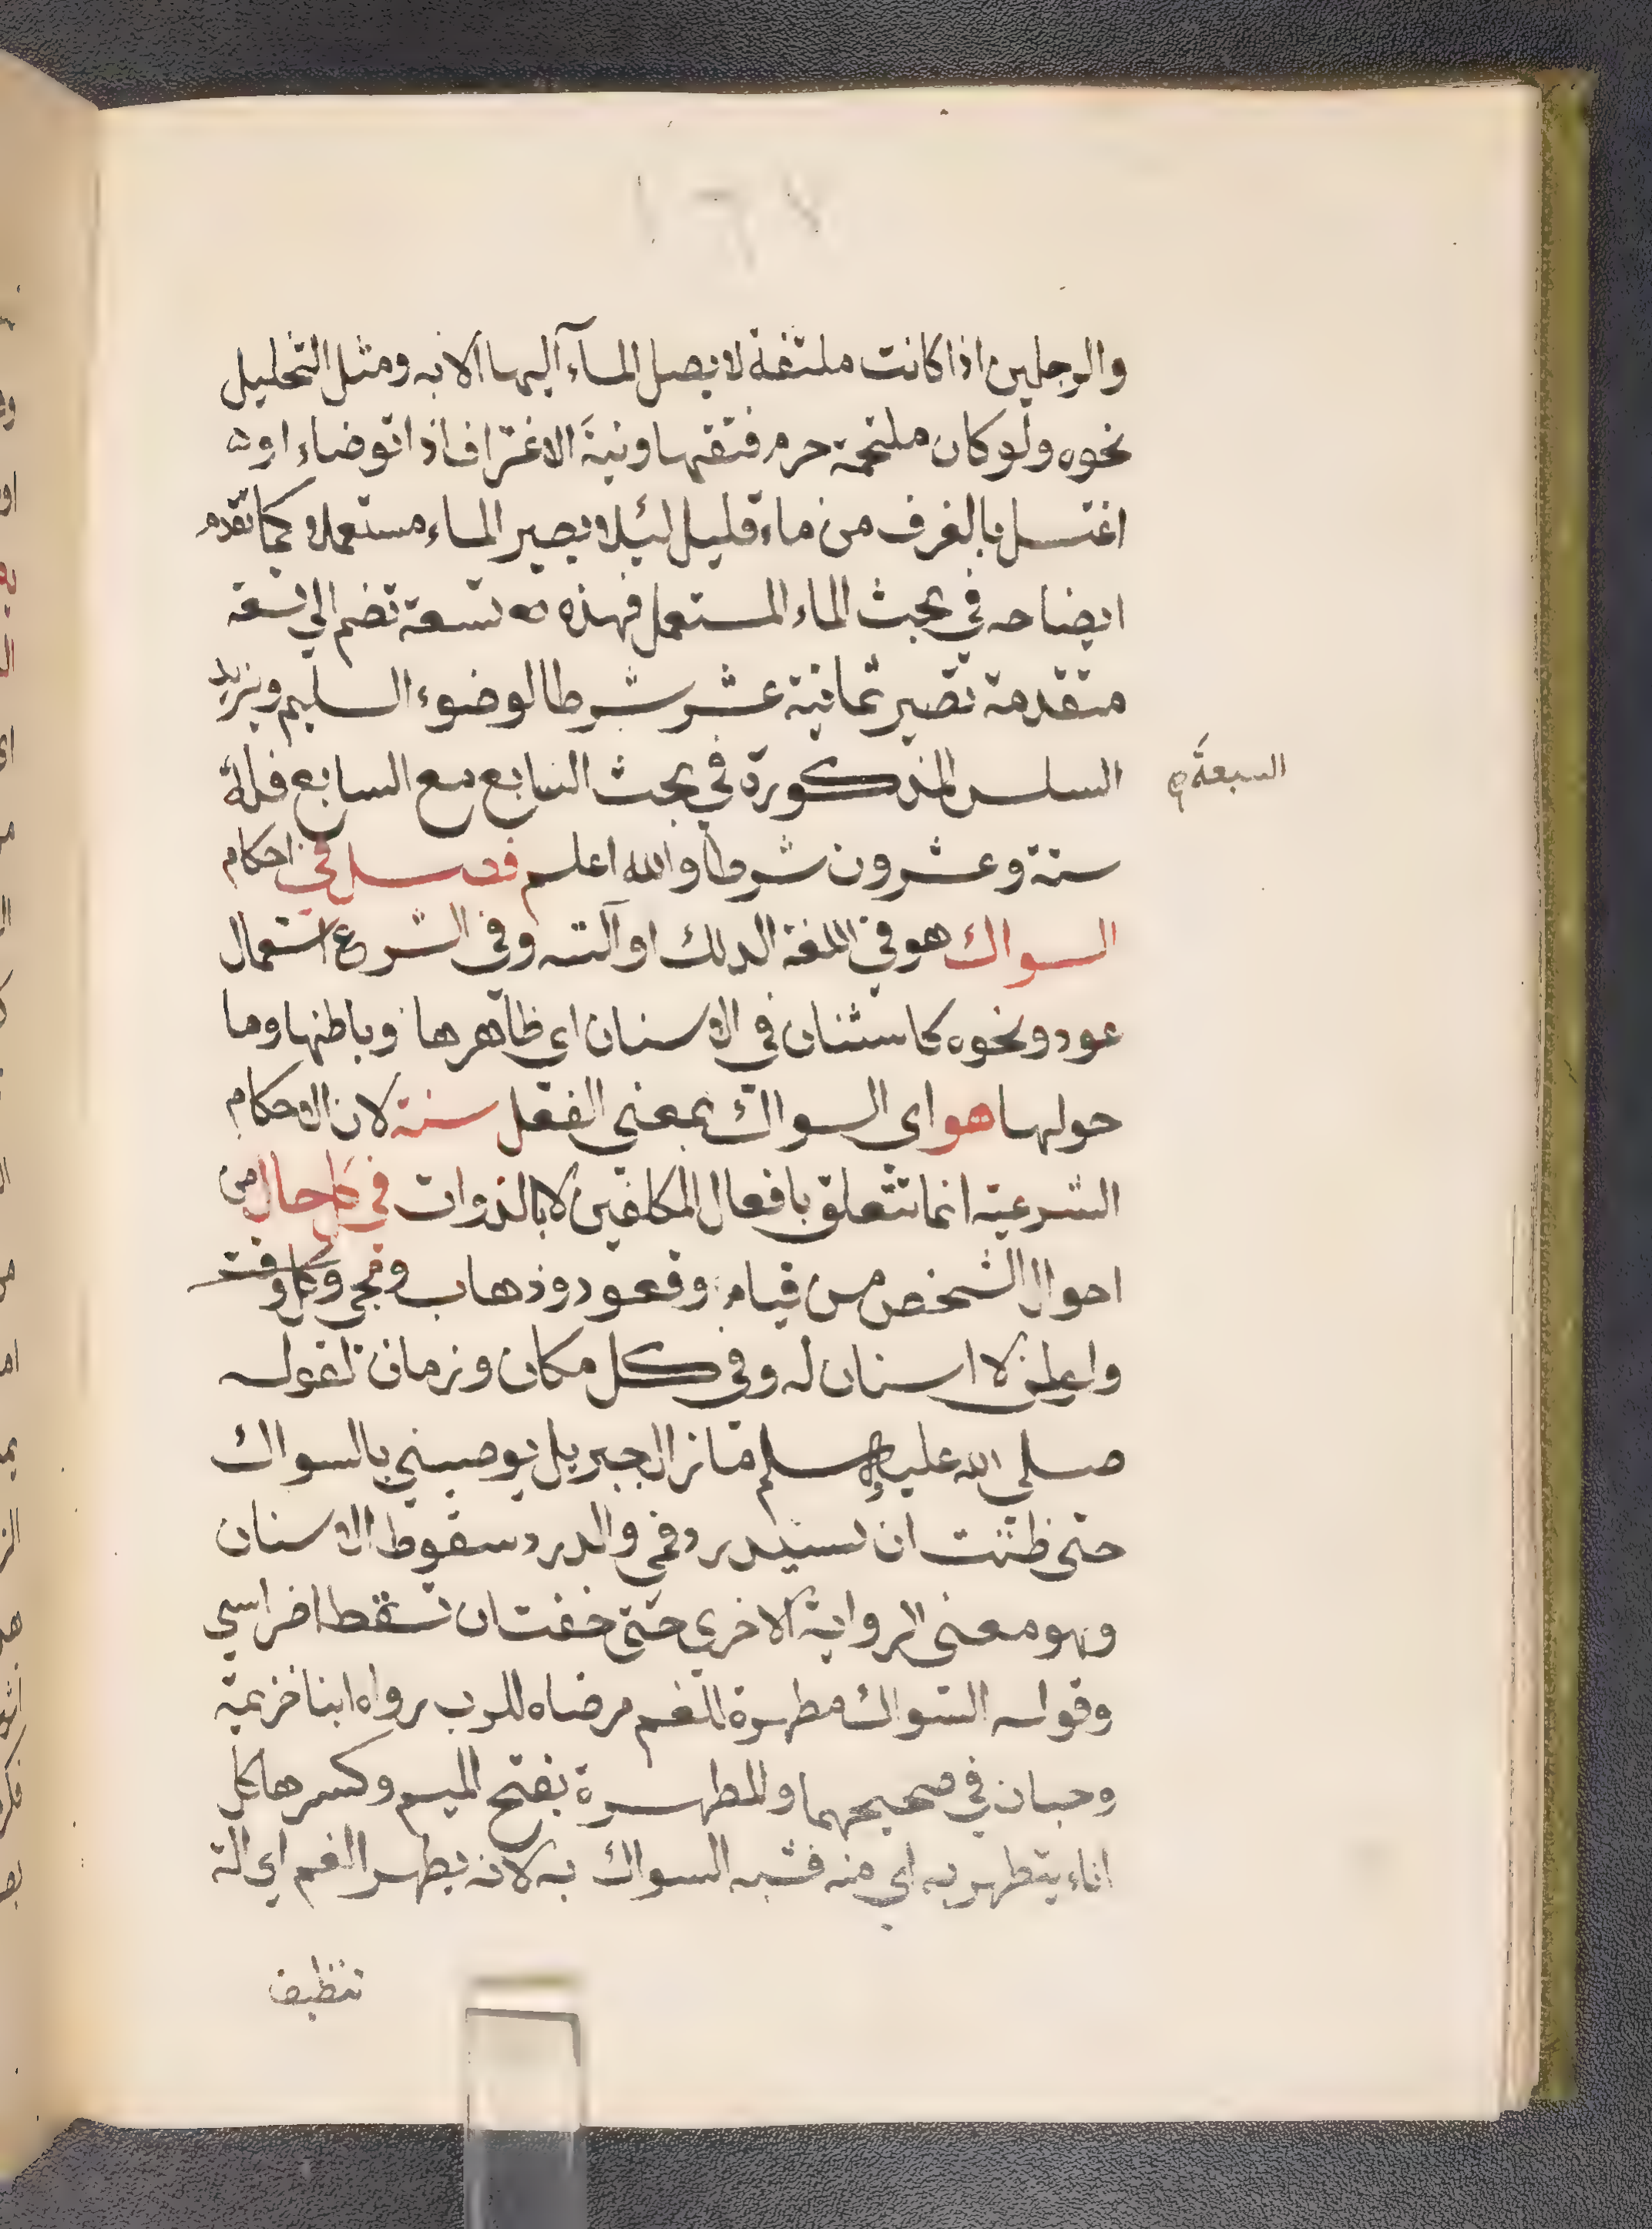 والرجلين اذا كانت ملتفة لا يصل المآء اليها الا به ومثل التخليل
نحوه ولو كان ملتحمة حرم فتقها ونية الاغتراف اذا توضاء او
اغتسل بالغرف من ماء قليل لئلا يصير الماء مستعملا كما تقدم
ايضاحه في بحث الماء المستعمل فهذه تسعة تضم الى تسعة
متقدمة تصير ثمانية عشر شرطا لوضوء السليم ويزيد
السلس المذكورة في بحث السابع مع السابع فله
السبعة
ستة وعشرون شرطا والله اعلم فصل في احكام
السواك هو في اللغة الدلك او آلته وفي الشرع استعمال
عود ونحوه كاشنان في الاسنان اي ظاهرها وباطنها وما
حولها هو اى السواك بمعنى الفعل سنة لان الاحكام
الشرعية انما تتعلق بافعال المكلفين لا بالذوات في كل حال من
احوال الشخص من قيام وقعود وذهاب ومجي وكل وقت
ولو لمن لا اسنان له وفي كل مكان وزمان لقوله
صلى الله عليه وسلم ما زال جبريل يوصيني بالسواك
حتى ظننت ان سيدرد فمي والدرد سقوط الاسنان
وهو معنى الرواية الاخرى حتى خفت ان تسقط اضراسي
وقوله السواك مطهرة للفم مرضاه للرب رواه ابنا خزيمة
وحبان في صحيحهما والمطهرة بفتح الميم وكسرها كل
اناء يتطهر به اي منه فشبه السواك به لانه يطهر الفم اي الة
تنظيف